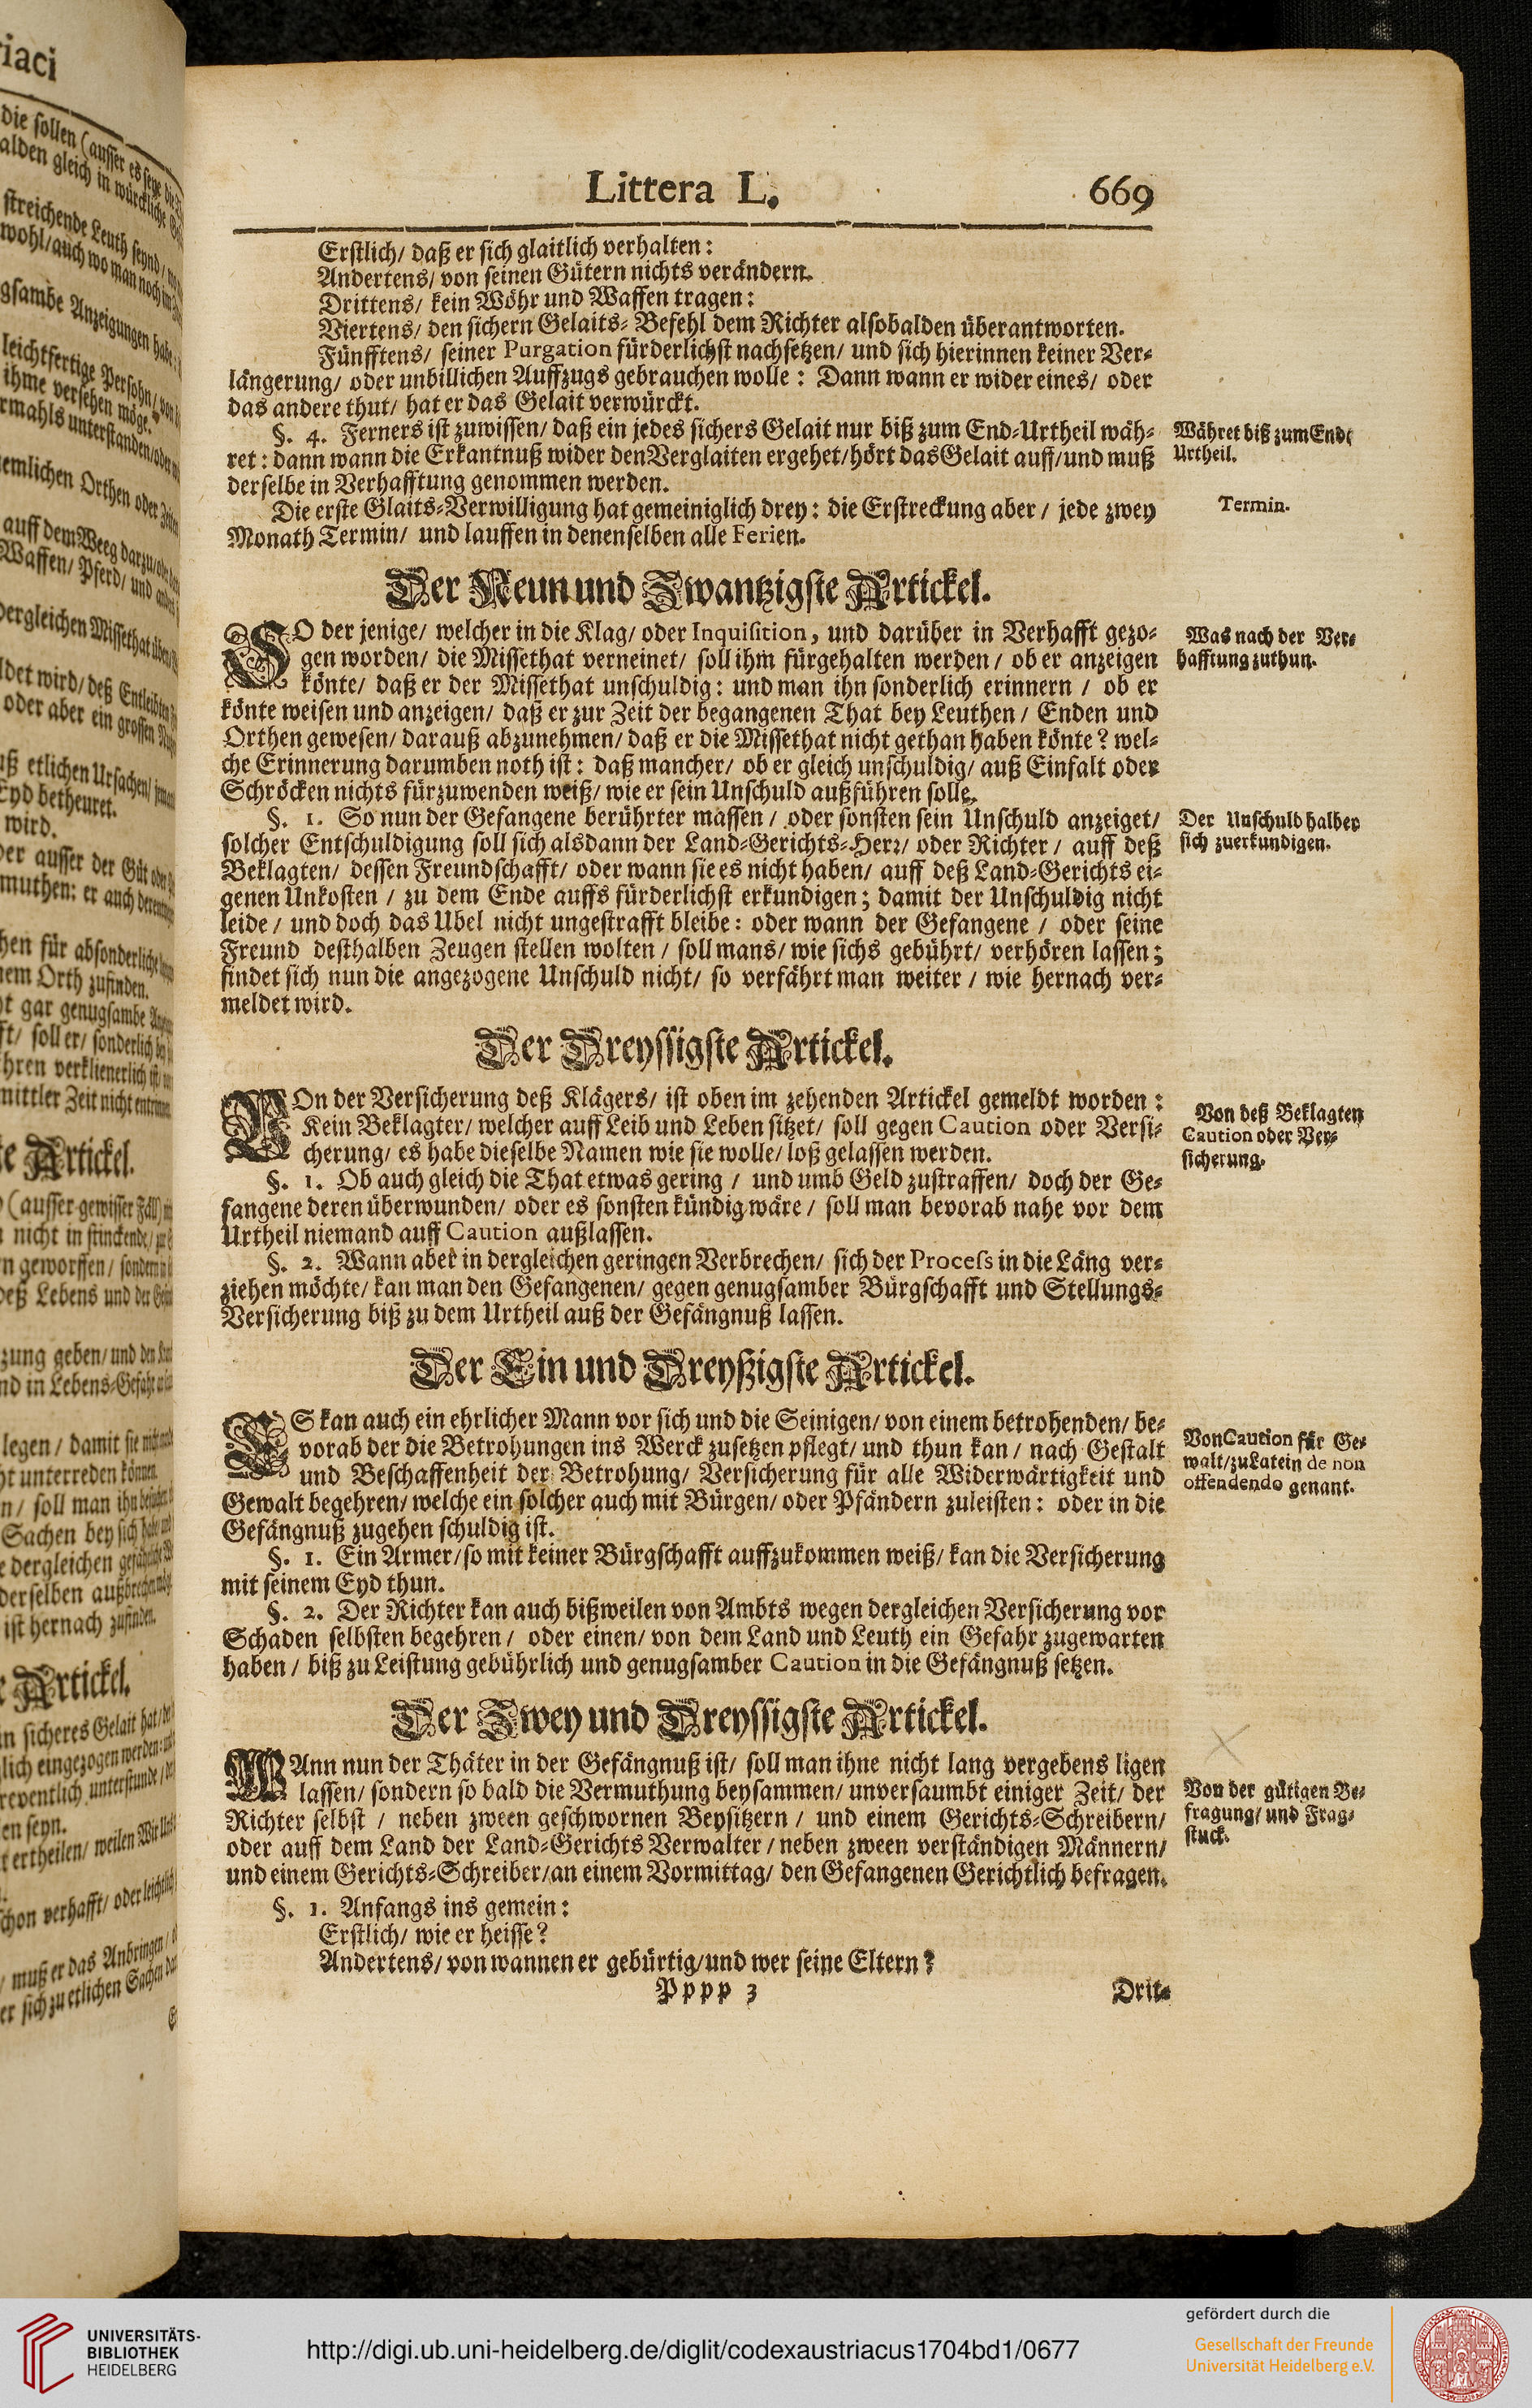 Littera L. 669
Erstlich/ daß er sich glaitlich verhalten:
Andertens/ von seinen Gütern nichts verändern.
Drittens/ kein Wöhr und Waffen tragen:
Viertens/ den sichern Gelaits-Befehl dem Richter alsobalden überantworten.
Fünfftens/ seiner Purgation fürderlichst nachsetzen/ und sich hierinnen keiner Ver-
längerung/ oder unbillichen Auffzugs gebrauchen wolle: Dann wann er wider eines/ oder
das andere thut/ hat er das Gelait verwürckt.
§. 4. Ferners ist zuwissen/ daß ein jedes sichers Gelait nur biß zum End-Urtheil wäh-
ret: dann wann die Erkantnuß wider den Verglaiten ergehet/ hört das Gelait auff/ und muß
derselbe in Verhafftung genommen werden.
Währet biß zum End-
Urtheil.
Die erste Glaits-Verwilligung hat gemeiniglich drey: die Erstreckung aber / jede zwey
Monath Termin/ und lauffen in denenselben alle Ferien.
Termin.
Der Neun und Zwantzigste Artickel.
SO der jenige/ welcher in die Klag/ oder Inquisition, und darüber in Verhafft gezo-
gen worden/ die Missethat verneinet/ soll ihm fürgehalten werden / ob er anzeigen
könte/ daß er der Missethat unschuldig: und man ihn sonderlich erinnern / ob er
könte weisen und anzeigen/ daß er zur Zeit der begangenen That bey Leuthen / Enden und
Orthen gewesen/ darauß abzunehmen/ daß er die Missethat nicht gethan haben könte? wel-
che Erinnerung darumben noth ist: daß mancher/ ob er gleich unschuldig/ auß Einfalt oder
Schröcken nichts fürzuwenden weiß/ wie er sein Unschuld außführen solle.
Was nach der Ver-
hafftung zuthun.
§. 1. So nun der Gefangene berührter massen / oder sonsten sein Unschuld anzeiget/
solcher Entschuldigung soll sich alsdann der Land-Gerichts-Herr/ oder Richter / auff deß
Beklagten/ dessen Freundschafft/ oder wann sie es nicht haben/ auff deß Land-Gerichts ei-
genen Unkosten / zu dem Ende auffs fürderlichst erkundigen; damit der Unschuldig nicht
leide / und doch das Ubel nicht ungestrafft bleibe: oder wann der Gefangene / oder seine
Freund desthalben Zeugen stellen wolten / soll mans/ wie sichs gebührt/ verhören lassen;
findet sich nun die angezogene Unschuld nicht/ so verfährt man weiter / wie hernach ver-
meldet wird.
Der Unschuld halber
sich zuerkundigen.
Der Dreyssigste Artickel.
VOn der Versicherung deß Klägers/ ist oben im zehenden Artickel gemeldt worden:
Kein Beklagter/ welcher auff Leib und Leben sitzet/ soll gegen Caution oder Versi-
cherung/ es habe dieselbe Namen wie sie wolle/ loß gelassen werden.
Von deß Beklagten
Caution oder Ver-
sicherung.
§. 1. Ob auch gleich die That etwas gering / und umb Geld zustraffen/ doch der Ge-
fangene deren überwunden/ oder es sonsten kündig wäre / soll man bevorab nahe vor dem
Urtheil niemand auff Caution außlassen.
§. 2. Wann aber in dergleichen geringen Verbrechen/ sich der Process in die Läng ver-
ziehen möchte/ kan man den Gefangenen/ gegen genugsamber Bürgschafft und Stellungs-
Versicherung biß zu dem Urtheil auß der Gefängnuß lassen.
Der Ein und Dreyßigste Artickel.
ES kan auch ein ehrlicher Mann vor sich und die Seinigen/ von einem betrohenden/ be-
vorab der die Betrohungen ins Werck zusetzen pflegt/ und thun kan / nach Gestalt
und Beschaffenheit der Betrohung/ Versicherung für alle Widerwärtigkeit und
Gewalt begehren/ welche ein solcher auch mit Bürgen/ oder Pfändern zuleisten: oder in die
Gefängnuß zugehen schuldig ist.
Von Caution für Ge-
walt/ zu Latein de non
offendendo genant.
§. 1. Ein Armer/ so mit keiner Bürgschafft auffzukommen weiß/ kan die Versicherung
mit seinem Eyd thun.
§. 2. Der Richter kan auch bißweilen von Ambts wegen dergleichen Versicherung vor
Schaden selbsten begehren / oder einen/ von dem Land und Leuth ein Gefahr zugewarten
haben / biß zu Leistung gebührlich und genugsamber Caution in die Gefängnuß setzen.
Der Zwey und Dreyssigste Artickel.
WAnn nun der Thäter in der Gefängnuß ist/ soll man ihne nicht lang vergebens ligen
lassen/ sondern so bald die Vermuthung beysammen/ unversaumbt einiger Zeit/ der
Richter selbst / neben zween geschwornen Beysitzern / und einem Gerichts-Schreibern/
oder auff dem Land der Land-Gerichts Verwalter / neben zween verständigen Männern/
und einem Gerichts-Schreiber/ an einem Vormittag/ den Gefangenen Gerichtlich befragen.
Von der gütigen Be-
fragung/ und Frag-
stuck.
§. 1. Anfangs ins gemein:
Erstlich/ wie er heisse?
Andertens/ von wannen er gebürtig/ und wer seine Eltern?
Pppp 3 Drit-
UNIVERSITÄTS-
BIBLIOTHEK
HEIDELBERG
http://digi.ub.uni-heidelberg.de/diglit/codexaustriacus1704bd1/0677
gefördert durch die
Gesellschaft der Freunde
Universität Heidelberg e.V.